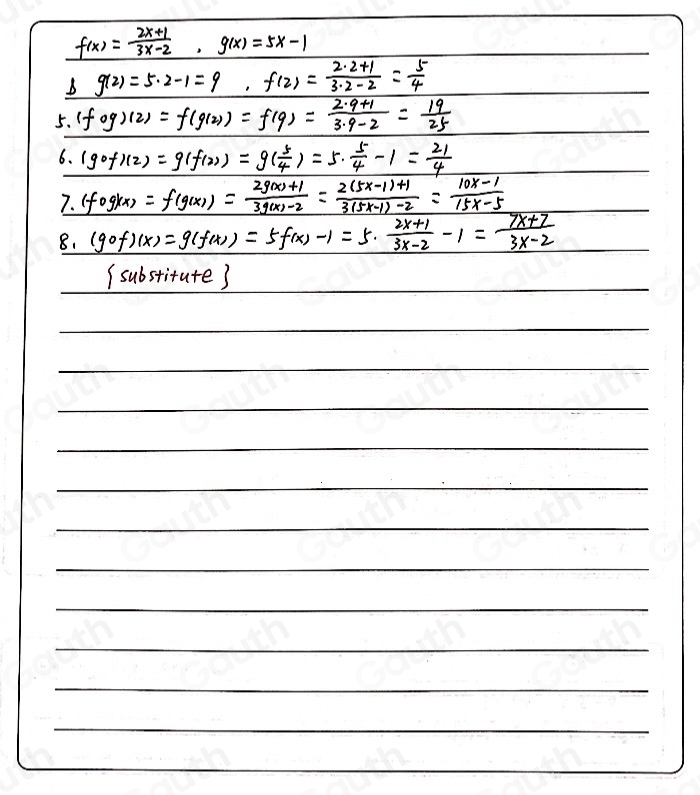 f(x) = \frac{2x+1}{3x-2} , g(x) = 5x-1
g(2) = 5·2-1 = 9 , f(2) = \frac{2·2+1}{3·2-2} = \frac{5}{4}
5. (f∘g)(2) = f(g(2)) = f(9) = \frac{2·9+1}{3·9-2} = \frac{19}{25}
6. (g∘f)(2) = g(f(2)) = g(\frac{5}{4}) = 5·\frac{5}{4} - 1 = \frac{21}{4}
7. (f∘g)(x) = f(g(x)) = \frac{2g(x)+1}{3g(x)-2} = \frac{2(5x-1)+1}{3(5x-1)-2} = \frac{10x-1}{15x-5}
8. (g∘f)(x) = g(f(x)) = 5f(x)-1 = 5·\frac{2x+1}{3x-2} - 1 = \frac{7x+7}{3x-2}
{substitute}